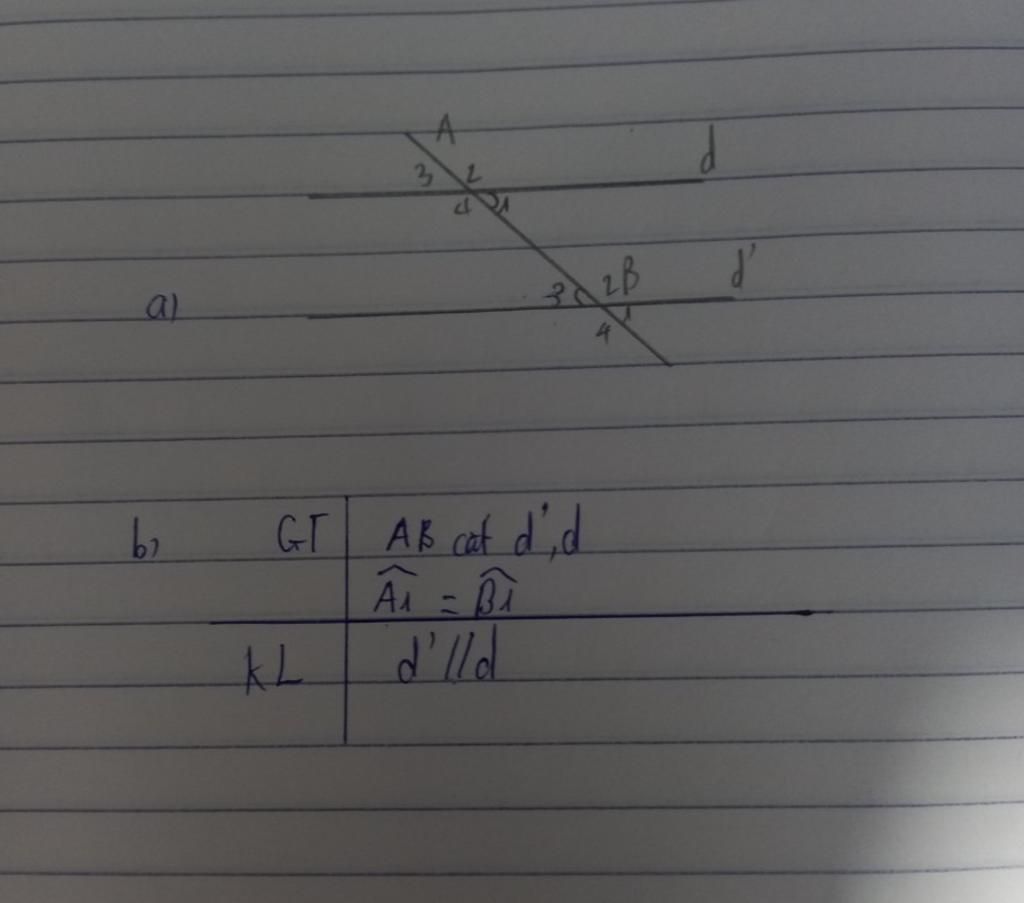 A
3 2 d
4 1
3 2 B d'
a)
1
4
b, GT AB cat d', d
A1 = B1
KL d' // d